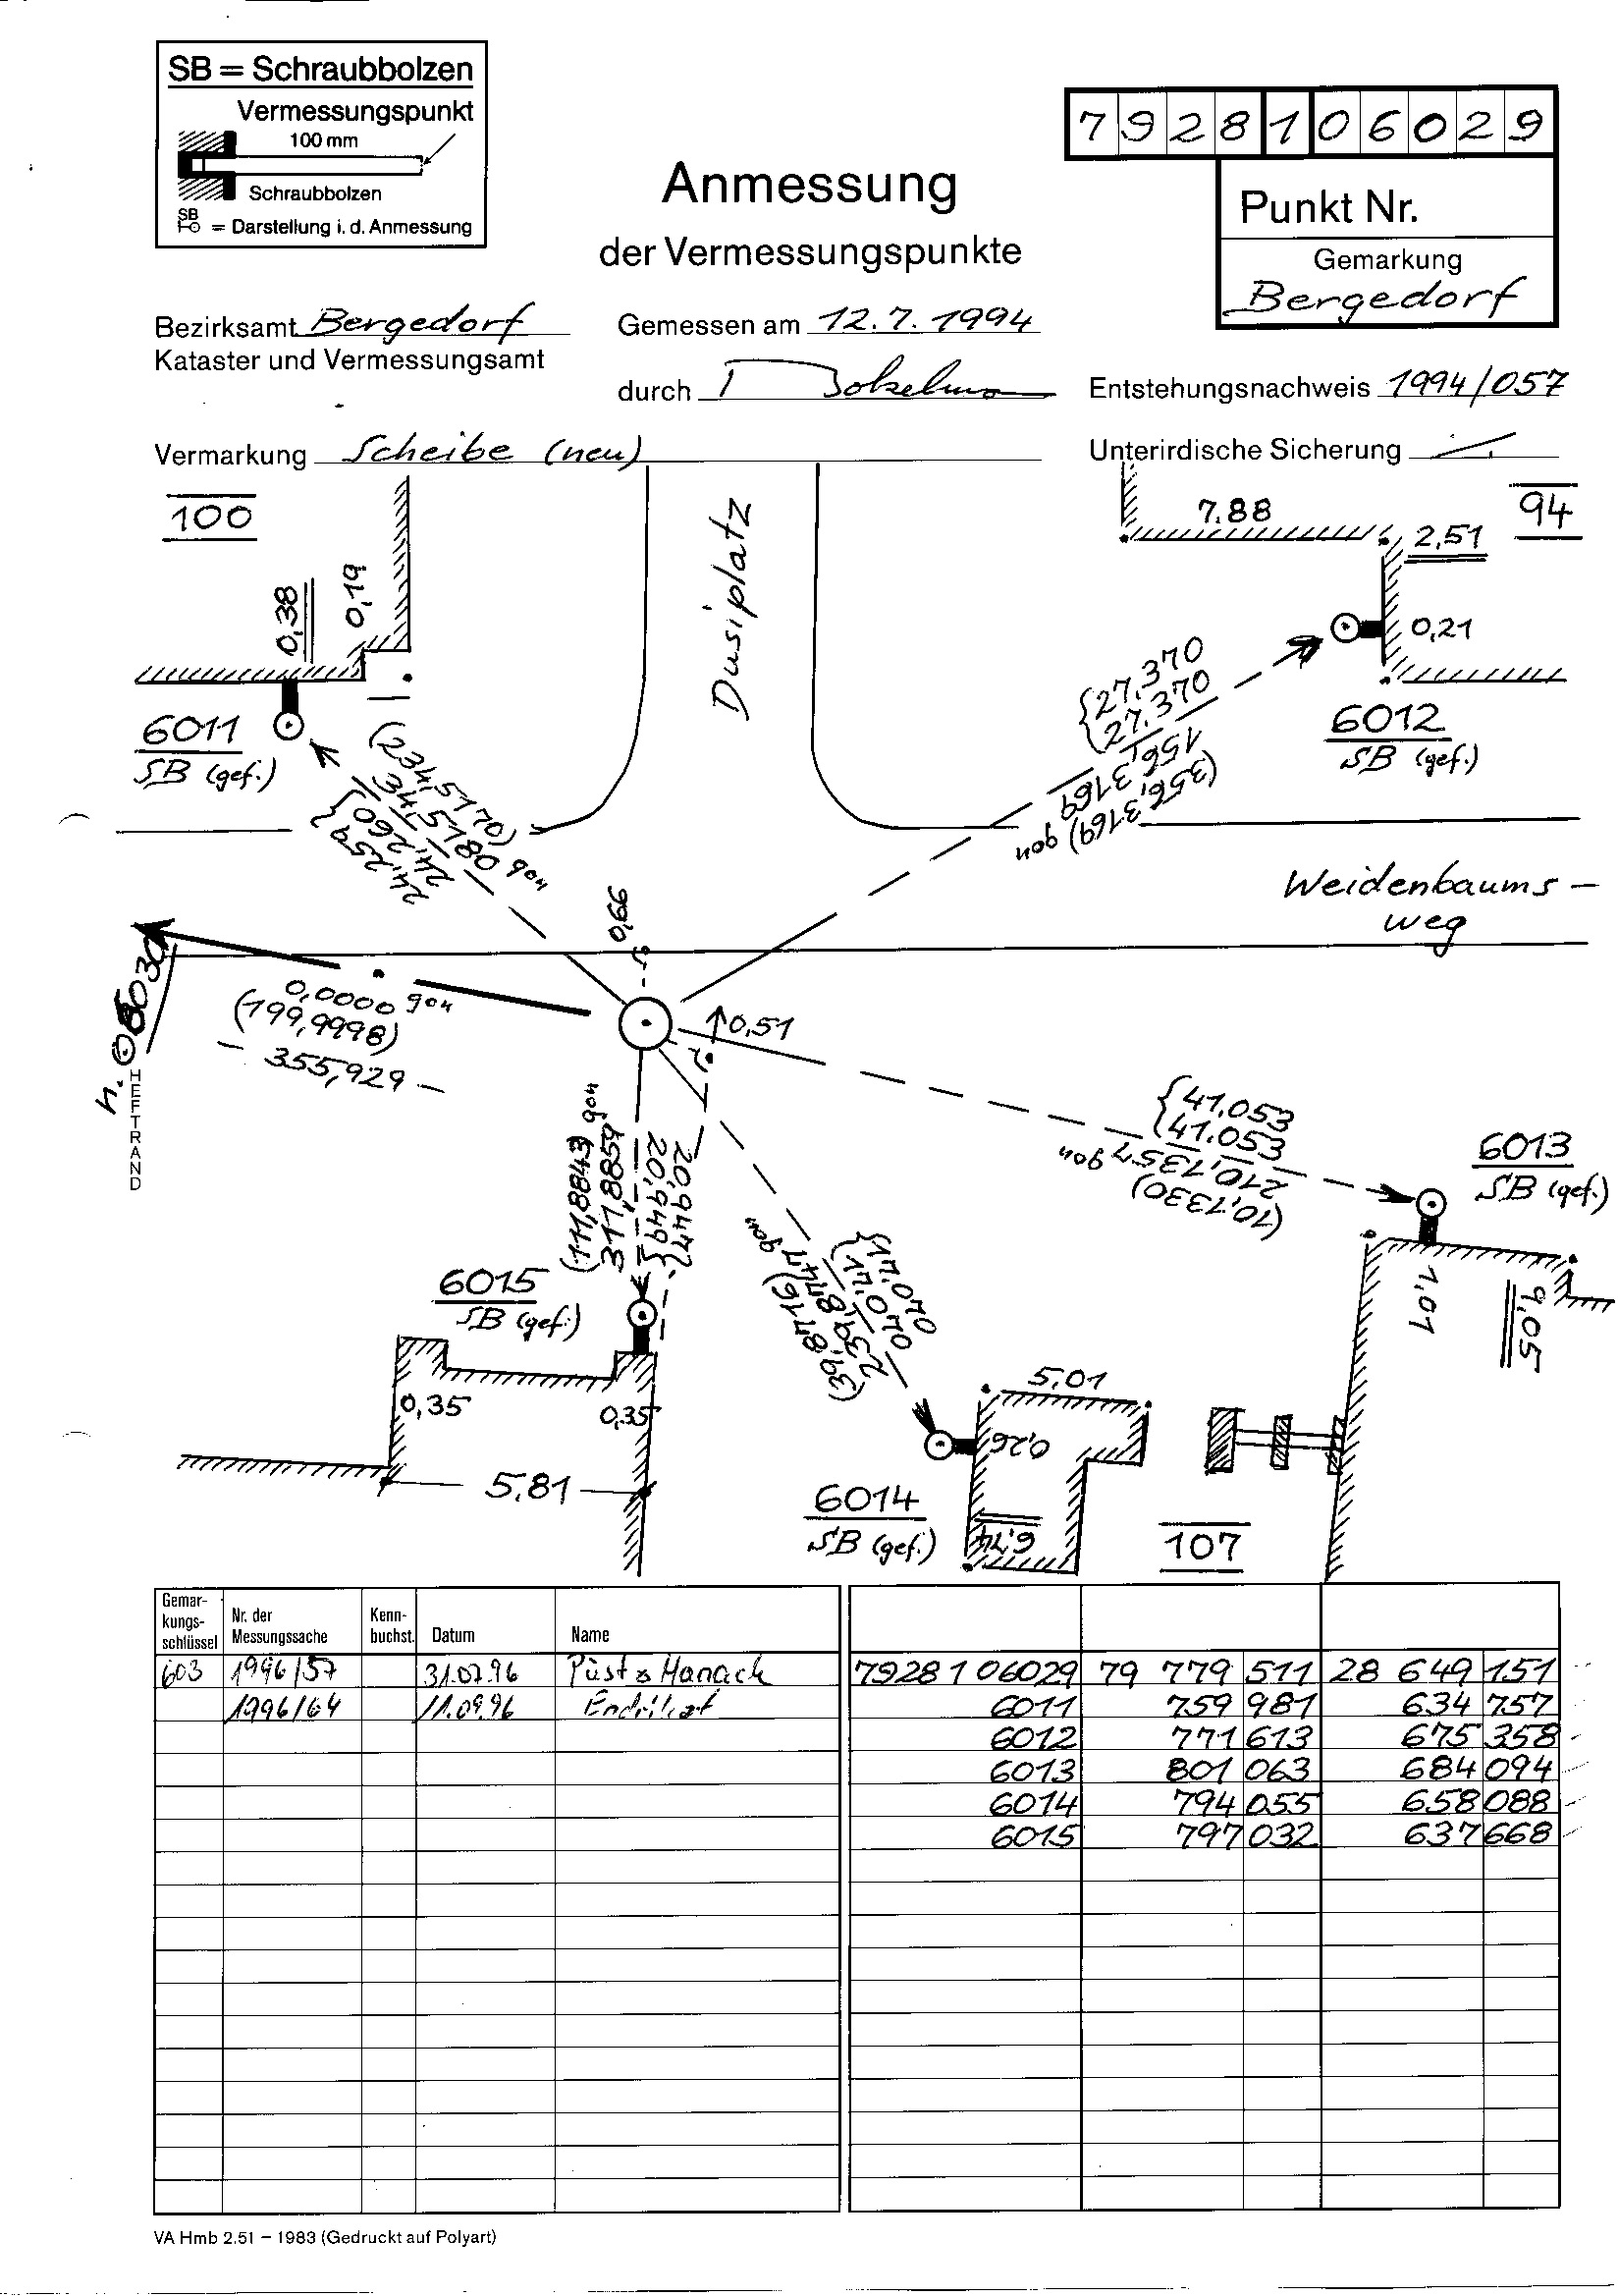 SB = Schraubbolzen
Vermessungspunkt
100 mm
Schraubbolzen
SB
= Darstellung i. d. Anmessung
7928106029
Punkt Nr.
Gemarkung
Bergedorf
Anmessung
der Vermessungspunkte
Bezirksamt Bergedorf
Kataster und Vermessungsamt
Gemessen am 12.7.1994
durch
Entstehungsnachweis 1994/057
Vermarkung Scheibe (neu)
Unterirdische Sicherung
100
0,38
0,19
6011
SB (gef.)
Dusiplatz
7.88
94
2,51
0,21
6012
SB (gef.)
{27.370
27.370
156,3169
(356,3169) gon
(234,5170)
34,5180 gon
24,260
24,259
Weidenbaums-
weg
0,66
0,51
n. 6030
0,0000 gon
(199,9998)
- 355,929 -
HEFTRAND
{41.053
41.053
210,1357 gon
(10,1330)
6013
SB (gef.)
1.01
9,05
(111,8843) gon
311,8859
20,949
20,947
6015
SB (gef.)
0,35
0,35
5.81
{17.070
17.070
239,8747 gon
(39,8716)
5,01
0,26
6014
SB (gef.)
6,74
107
Gemar-
kungs-
schlüssel
Nr. der
Messungssache
Kenn-
buchst.
Datum
Name
603 1996/57 31.07.96 Püst & Hanack 7928106029 79 779 511 28 649 151
1996/64 11.09.96 6011 759 981 634 757
6012 771 613 675 358
6013 801 063 684 094
6014 794 055 658 088
6015 797 032 637 668
VA Hmb 2.51 – 1983 (Gedruckt auf Polyart)